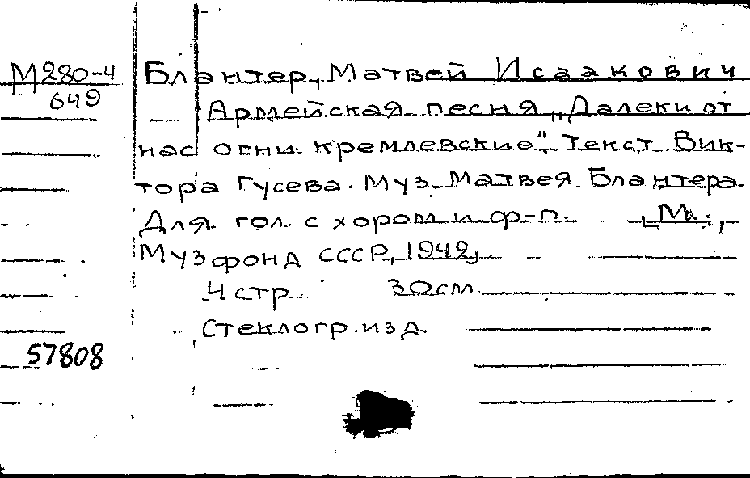 М280-4
649
Блантер, Матвей Исаакович
Армейская песня „Далеки от
нас огни кремлевские". Текст Вик-
тора Гусева. Муз. Матвея Блантера.
Для гол. с хором и ф-п. [М.],
Музфонд СССР, 1942,
4 стр. 30см.
Стеклогр. изд.
57808